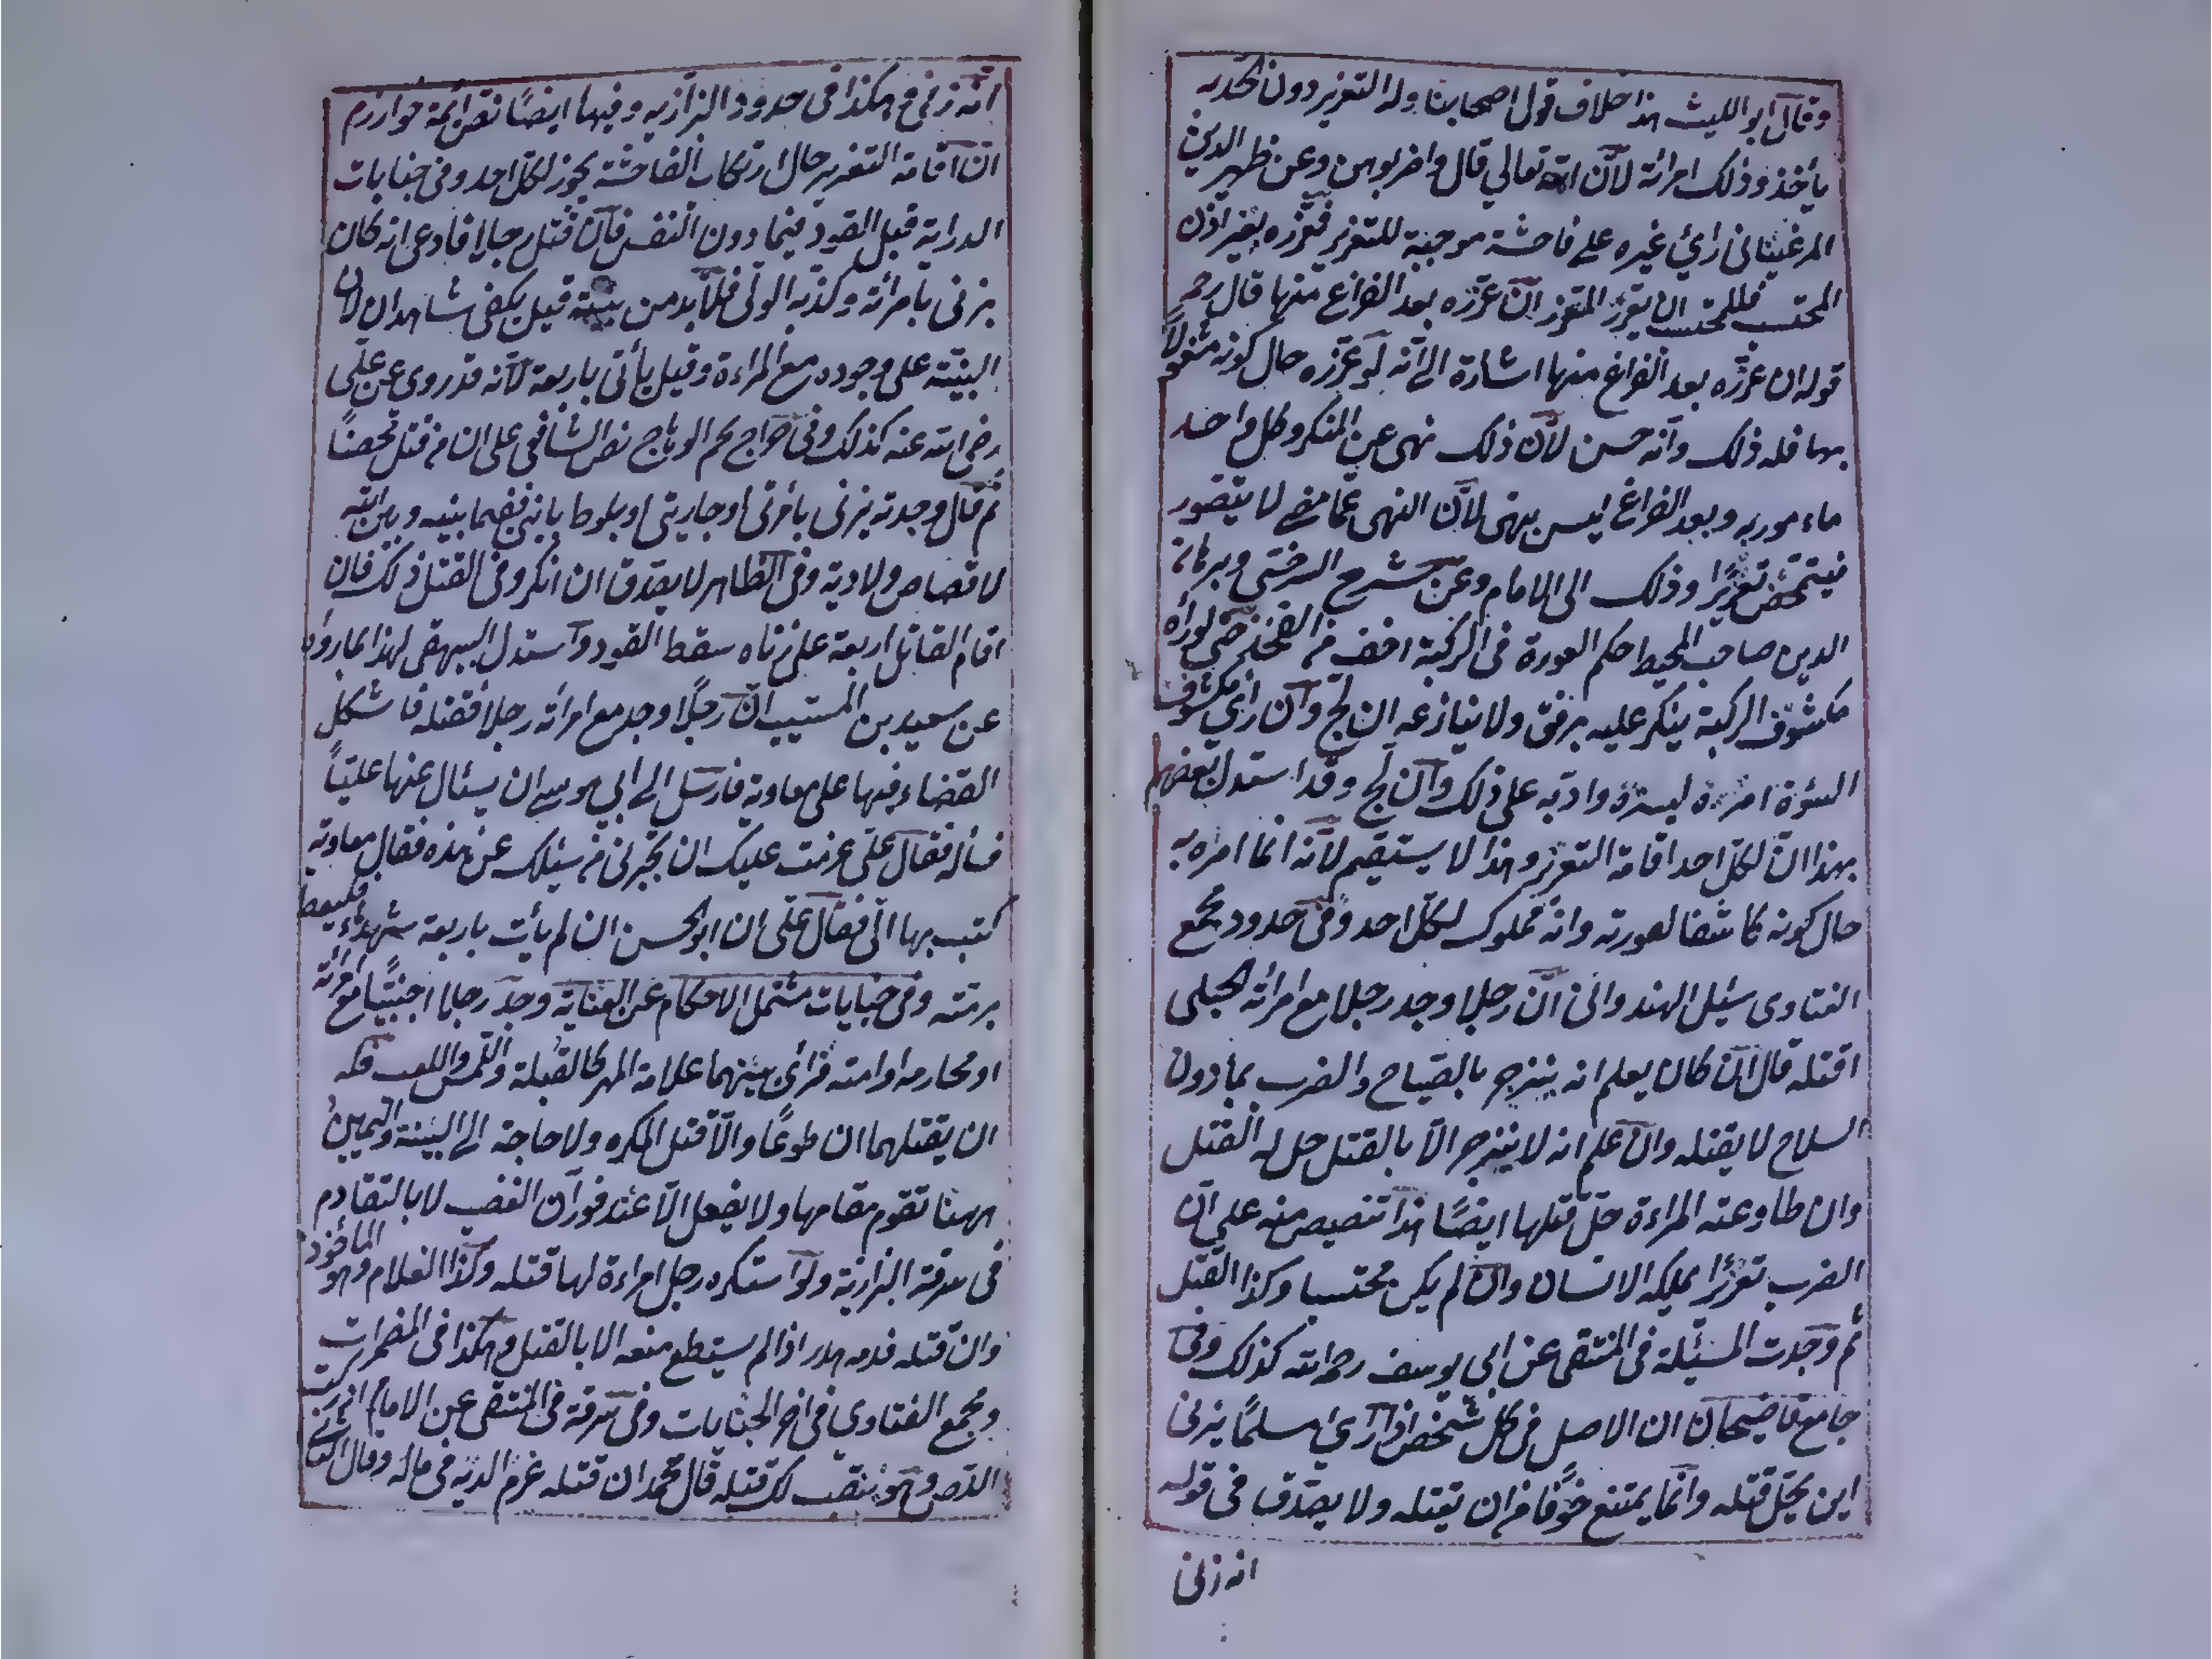 وقال ابو الليث هذا خلاف قول اصحابنا وله التعزير دون الحد به
يأخذ وذلك امرأته لأن الله تعالي قال واضربوهن وعن ظهير الدين
المرغيناني رأي غيره علے فاحشة موجبة للتعزير فعزره بغير اذن
المحتسب فللمحتسب ان يعزر المعزر ان عزره بعد الفراغ منها قال رحمه
قوله ان عزره بعد الفراغ منها اشارة الے انه لو عزره حال كونه مشغولاً
بها فله ذلك وانه حسن لأن ذلك نهى عن المنكر وكل واحد
مأمور به وبعد الفراغ ليس بنهى لأن النهى عما مضے لا يتصور
فيتمحض تعزيرًا وذلك الى الامام وعن شرح السرخسى وبرهان
الدين صاحب المحيط حكم العورة فى الركبة اخف من الفخذ حتى لو رأه
مكشوف الركبة ينكر عليه برفق ولا ينازعه ان لج وان راى مكشوف
السوءة امره لستره وادبه على ذلك وان لج وقد استدل بعضهم
بهذا ان لكل احد اقامة التعزير وهذا لا يستقيم لأنه انما امره به
حال كونه كاشفا لعورته وانه مملوك لكل احد وفى حدود مجمع
الفتاوى سئل الهندوانى ان رجلا وجد رجلا مع امرأته ايحل
اقتله قال ان كان يعلم انه ينزجر بالصياح والضرب بما دون
السلاح لا يقتله وان علم انه لا ينزجر الا بالقتل حل له القتل
وان طاوعته المراءة حل قتلها ايضًا هذا تنصيص منه على ان
الضرب تعزيرًا يملكه الانسان وان لم يكن محتسبا وكذا القتل
ثم وجدت المسئلة فى المنتقى عن ابى يوسف رحمه الله كذلك وفى
جامع قاضيخان ان الاصل فى كل شخص اذا رأي مسلمًا يزنى
اين يحل قتله وانما يمتنع خوفًا من ان يقتله ولا يصدق فى قوله
انه زنى
انه زنى هكذا فى حدود البزازيه وفيها ايضًا نص ائمة خوارزم
ان اقامة التعزير حال ارتكاب الفاحشة يجوز لكل احد وفى جنايات
الدراية قبل القود فيما دون النفس فان قتل رجلا فادعى انه كان
يزنى بامرأته وكذبه الولى فلا بد من بينة قيل يكفى شاهدان لان
البينة على وجوده مع المراءة وقيل يأتى باربعة لأنه قد روى عن على
رضى الله عنه كذلك وفى نص الشافعى على ان من قتل محصنًا
ثم قال وجدته يزنى بامرأتى او جاريتى او يلوط بابنى ففيما بينه وبين الله
لا قصاص ولا دية وفى الظاهر لا يصدق ان انكر ولى القتل ذلك فان
اقام القاتل اربعة على زناه سقط القود واستدل البيهقى لهذا بما رواه
عن سعيد بن المسيب ان رجلًا وجد مع امرأته رجلا فقتله فاشكل
القضاء فيها على معاوية فارسل الے ابي موسے ان يسئال عنها عليًا
فسأله فقال على عزمت عليك ان تخبرنى من سئلك عن هذه فقال معاوية
كتب بها الى فقال على انا ابو الحسن ان لم يأت باربعة شهداء فليعط
برمته وفى جنايات مشتمل الاحكام عن العناية وجد رجلا اجنبيًا مع امرأته
او محارمه او امته فرأى بينهما علامة المهر كالقبلة واللمس واللعب فله
ان يقتلهما ان طوعًا والا قتل المكره ولا حاجة الے البينة واليمين
ههنا تقوم مقامها ولا يفعل الا عند فوران الغضب لا بالتقادم
فى سرقة البزازية ولو استكره رجل امراءة لها قتله وكذا الغلام وهو المأخوذ
وان قتله فدمه هدر اذا لم يستطع منعه الا بالقتل وهكذا فى المضمرات
ومجمع الفتاوي فى اخر الجنايات وفى سرقة فى المنتقى عن الامام
اللص وهو ينقب لك قتله قال محمد ان قتله غرم الدية فى ماله وقال